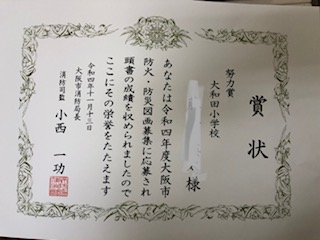 賞状
努力賞
大和田小学校
様
あなたは令和四年度大阪市
防火・防災図画募集に応募され
頭書の成績を収められましたので
ここにその栄誉をたたえます
令和四年十一月十三日
大阪市消防局長
消防司監 小西一功